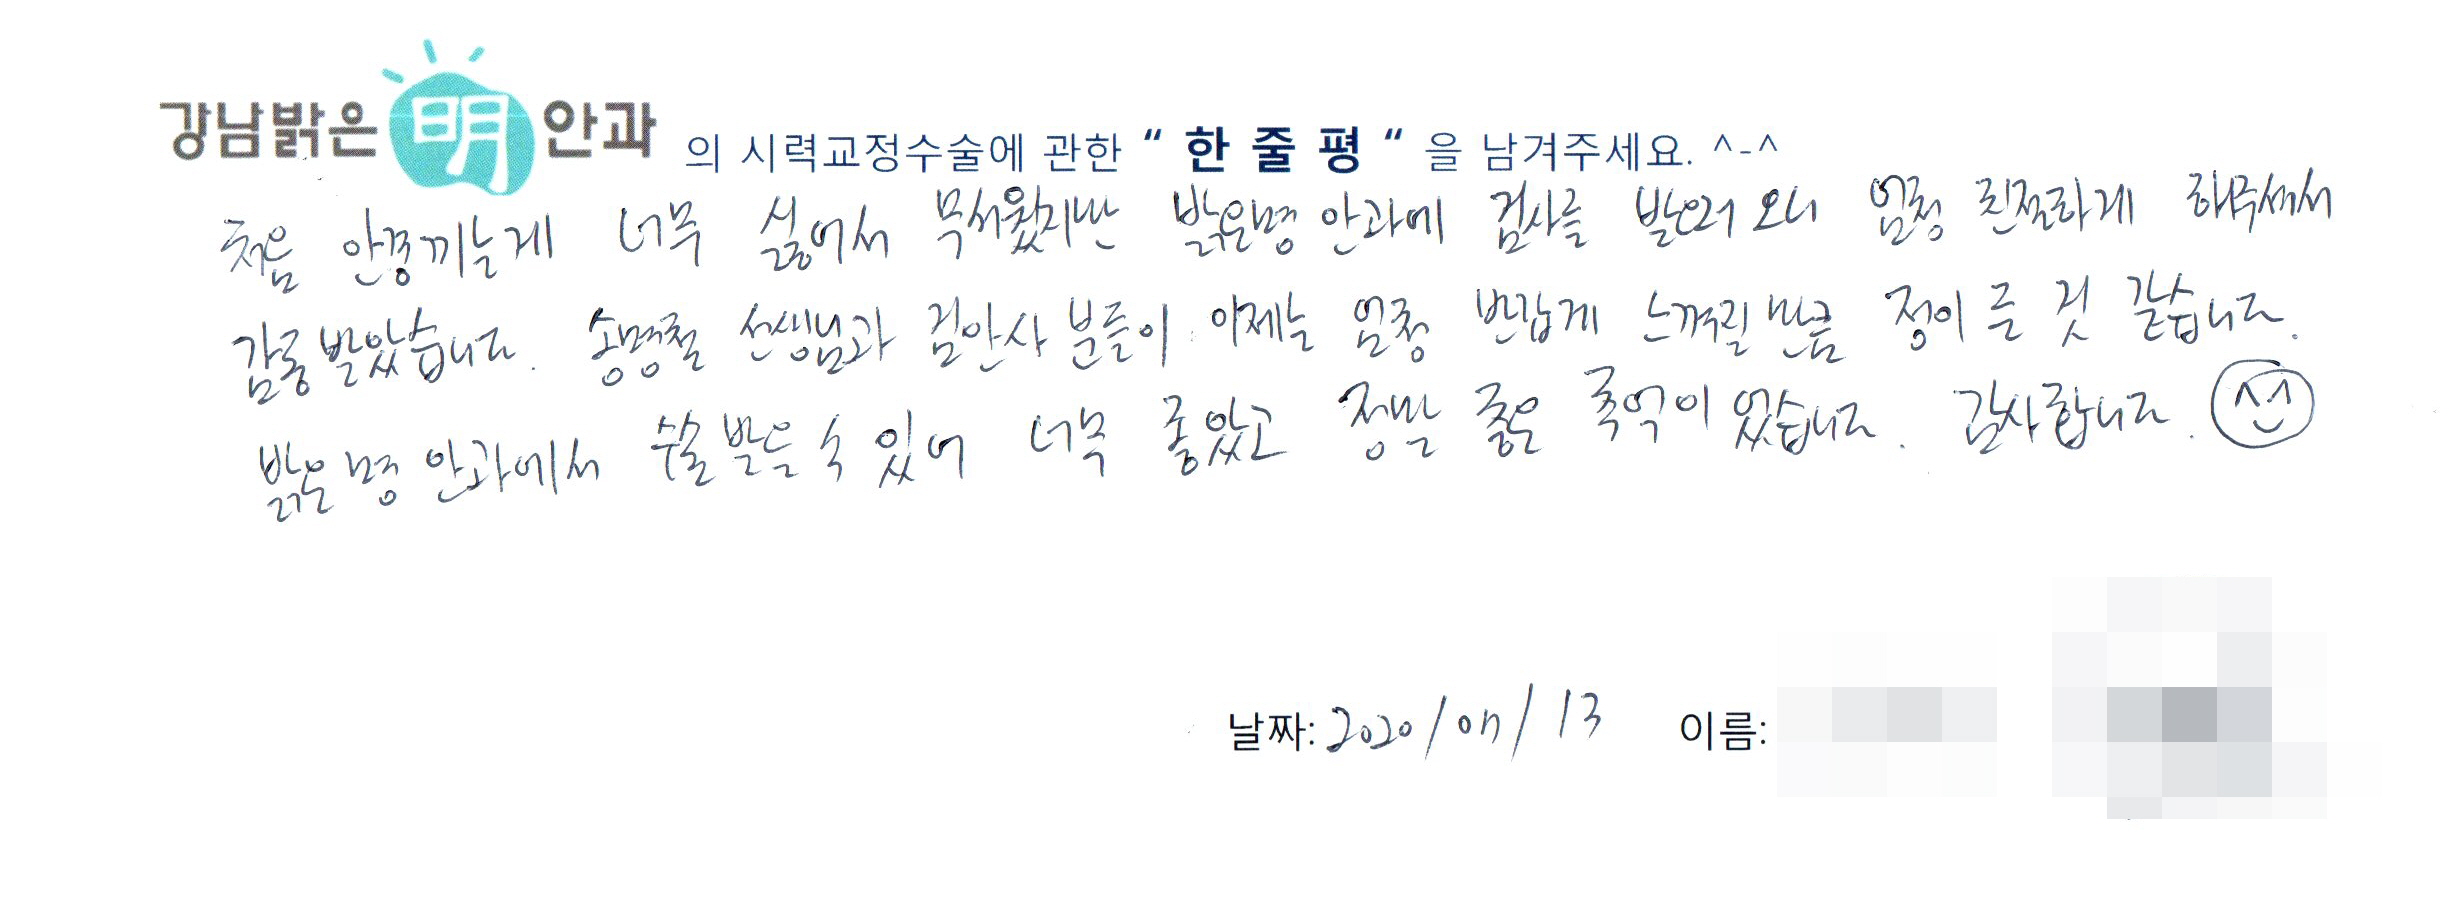 강남밝은明안과 의 시력교정수술에 관한 “ 한 줄 평 “ 을 남겨주세요. ^-^
처음 안경끼는게 너무 싫어서 무서웠지만 밝은명 안과에 검사를 받으러 오니 엄청 친절하게 해주셔서
감동 받았습니다. 송명철 선생님과 검안사 분들이 이제는 엄청 반갑게 느껴질 만큼 정이 든 것 같습니다.
밝은 명 안과에서 수술 받을 수 있어 너무 좋았고 정말 좋은 추억이 었습니다. 감사합니다.
날짜: 2020/07/13 이름: